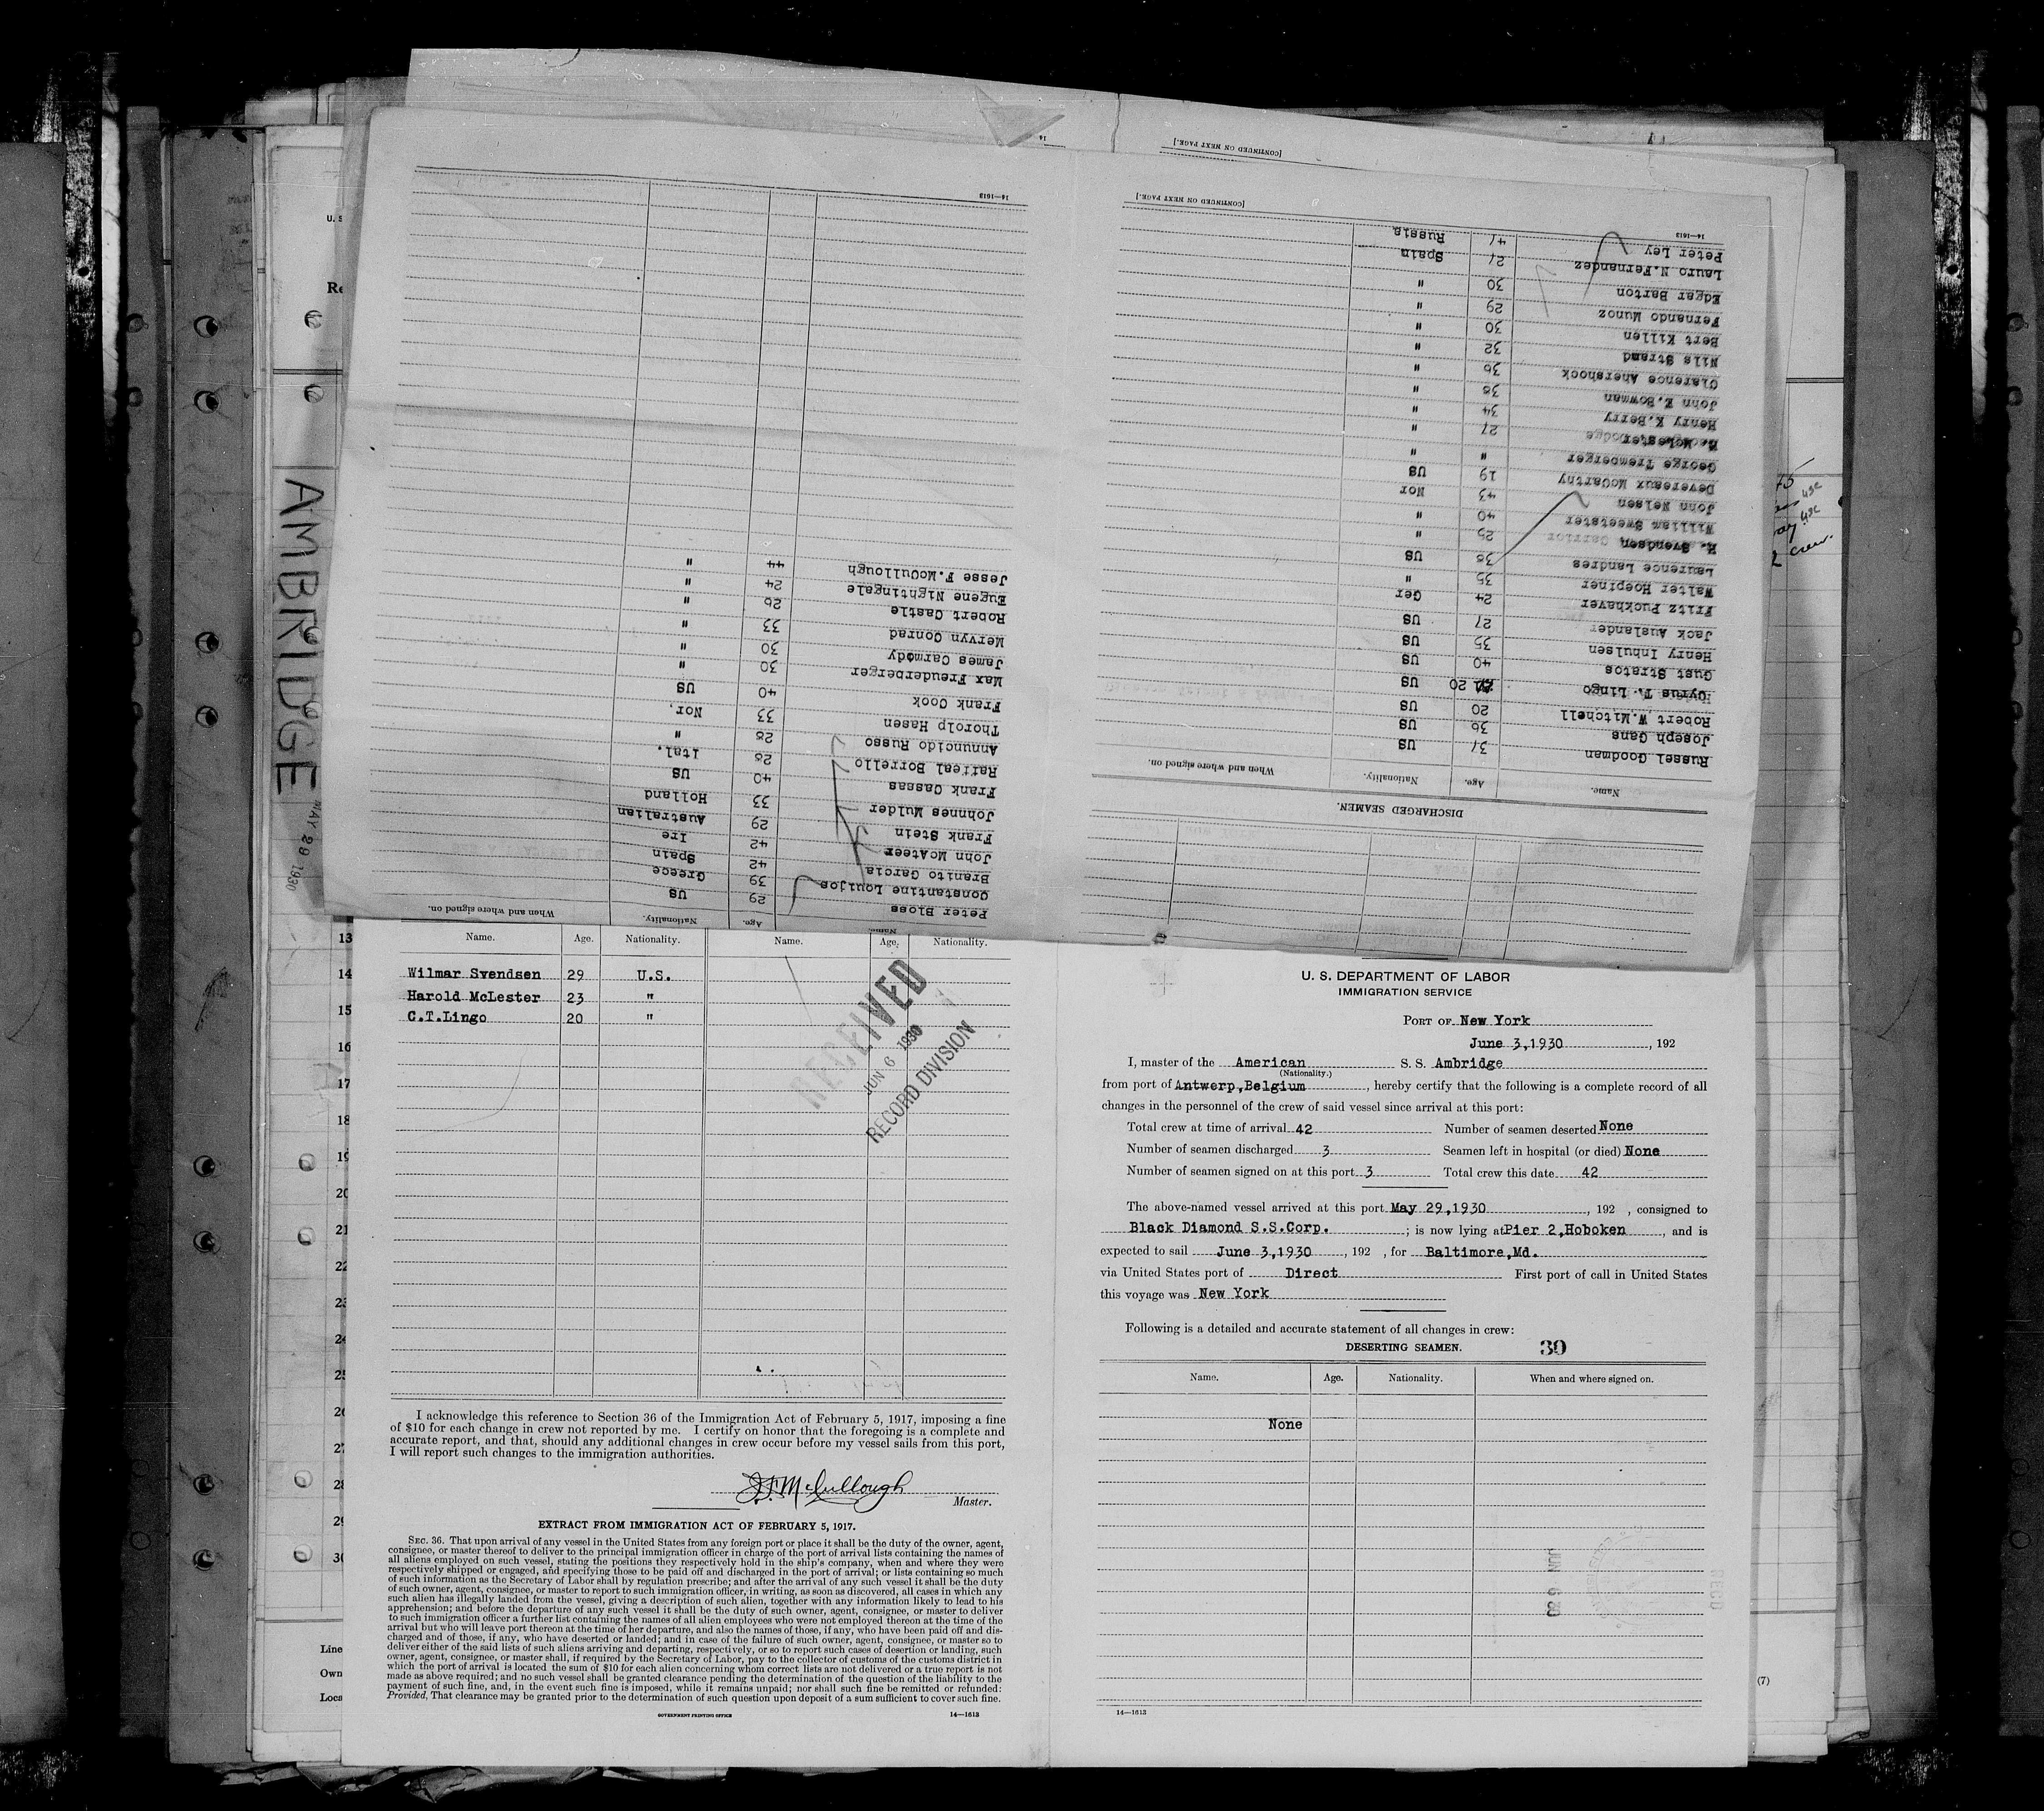 [CONTINUED ON NEXT PAGE.]
14
[CONTINUED ON NEXT PAGE.]
14—1613
14—1613
Peter Ley 41 Russia
Lauro N.Fernandez 21 Spain
Edgar Barton 30 "
Fernando Munoz 29 "
Bert Killen 30 "
Nils Strand 32 "
Clarence Ahershock 36 "
John Z.Bowman 38 "
Henry K.Berry 34 "
McLester 27 "
George Tremberger " "
Devereaux McCarthy 19 US
John Nelsen 43 Nor
William Sweetster 40 "
H. Svendsen 25 "
Laurence Landres 38 US
Walter Hoepiner 35 "
Fritz Puckhaver 24 Ger
Jack Auslander 27 US
Henry Inhulsen 35 US
Gust Stratos 40 US
Cyrus T. Lingo 20 US
Robert W.Mitchell 20 US
Joseph Gans 36 US
Russel Goodman 31 US
Name. Age. Nationality. When and where signed on.
DISCHARGED SEAMEN.
Jesse F.McCullough 44 "
Eugene Nightingale 24 "
Robert Castle 26 "
Mervyn Conrad 33 "
James Carmody 30 "
Max Freuderberger 30 "
Frank Cook 40 US
Thorolp Hasen 33 Nor.
Annuncido Russo 28 "
Raffeal Borrello 28 Ital.
Frank Cassas 40 US
Johnnes Mulder 33 Holland
Frank Stein 29 Australian
John McAteer 42 Ire
Branito Garcia 42 Spain
Constantine Louijos 39 Greece
Peter Bloss 29 US
Name. Age. Nationality. When and where signed on.
U. S
Re
AMBRIDGE
MAY 29 1930
crew.
13
14
15
16
17
18
19
20
21
22
23
24
25
26
27
28
29
30
Line
Own
Loca
(7)
Name. Age. Nationality. Name. Age. Nationality.
Wilmar Svendsen 29 U.S.
Harold McLester 23 "
C.T.Lingo 20 "
RECEIVED
JUN 6 1930
RECORD DIVISION
I acknowledge this reference to Section 36 of the Immigration Act of February 5, 1917, imposing a fine
of $10 for each change in crew not reported by me. I certify on honor that the foregoing is a complete and
accurate report, and that, should any additional changes in crew occur before my vessel sails from this port,
I will report such changes to the immigration authorities.
J.F.McCullough
Master.
EXTRACT FROM IMMIGRATION ACT OF FEBRUARY 5, 1917.
SEC. 36. That upon arrival of any vessel in the United States from any foreign port or place it shall be the duty of the owner, agent,
consignee, or master thereof to deliver to the principal immigration officer in charge of the port of arrival lists containing the names of
all aliens employed on such vessel, stating the positions they respectively hold in the ship's company, when and where they were
respectively shipped or engaged, and specifying those to be paid off and discharged in the port of arrival; or lists containing so much
of such information as the Secretary of Labor shall by regulation prescribe; and after the arrival of any such vessel it shall be the duty
of such owner, agent, consignee, or master to report to such immigration officer, in writing, as soon as discovered, all cases in which any
such alien has illegally landed from the vessel, giving a description of such alien, together with any information likely to lead to his
apprehension; and before the departure of any such vessel it shall be the duty of such owner, agent, consignee, or master to deliver
to such immigration officer a further list containing the names of all alien employees who were not employed thereon at the time of the
arrival but who will leave port thereon at the time of her departure, and also the names of those, if any, who have been paid off and dis-
charged and of those, if any, who have deserted or landed; and in case of the failure of such owner, agent, consignee, or master so to
deliver either of the said lists of such aliens arriving and departing, respectively, or so to report such cases of desertion or landing, such
owner, agent, consignee, or master shall, if required by the Secretary of Labor, pay to the collector of customs of the customs district in
which the port of arrival is located the sum of $10 for each alien concerning whom correct lists are not delivered or a true report is not
made as above required; and no such vessel shall be granted clearance pending the determination of the question of the liability to the
payment of such fine, and, in the event such fine is imposed, while it remains unpaid; nor shall such fine be remitted or refunded:
Provided, That clearance may be granted prior to the determination of such question upon deposit of a sum sufficient to cover such fine.
GOVERNMENT PRINTING OFFICE 14—1613
U. S. DEPARTMENT OF LABOR
IMMIGRATION SERVICE
PORT OF New York
June 3,1930, 192
I, master of the American S. S. Ambridge
(Nationality.)
from port of Antwerp,Belgium, hereby certify that the following is a complete record of all
changes in the personnel of the crew of said vessel since arrival at this port:
Total crew at time of arrival 42 Number of seamen deserted None
Number of seamen discharged 3 Seamen left in hospital (or died) None
Number of seamen signed on at this port 3 Total crew this date 42
The above-named vessel arrived at this port May 29,1930, 192 , consigned to
Black Diamond S.S.Corp. ; is now lying at Pier 2,Hoboken, and is
expected to sail June 3,1930, 192 , for Baltimore,Md.
via United States port of Direct First port of call in United States
this voyage was New York
Following is a detailed and accurate statement of all changes in crew:
DESERTING SEAMEN. 30
Name. Age. Nationality. When and where signed on.
None
JUN 6 30
RECD
14—1613